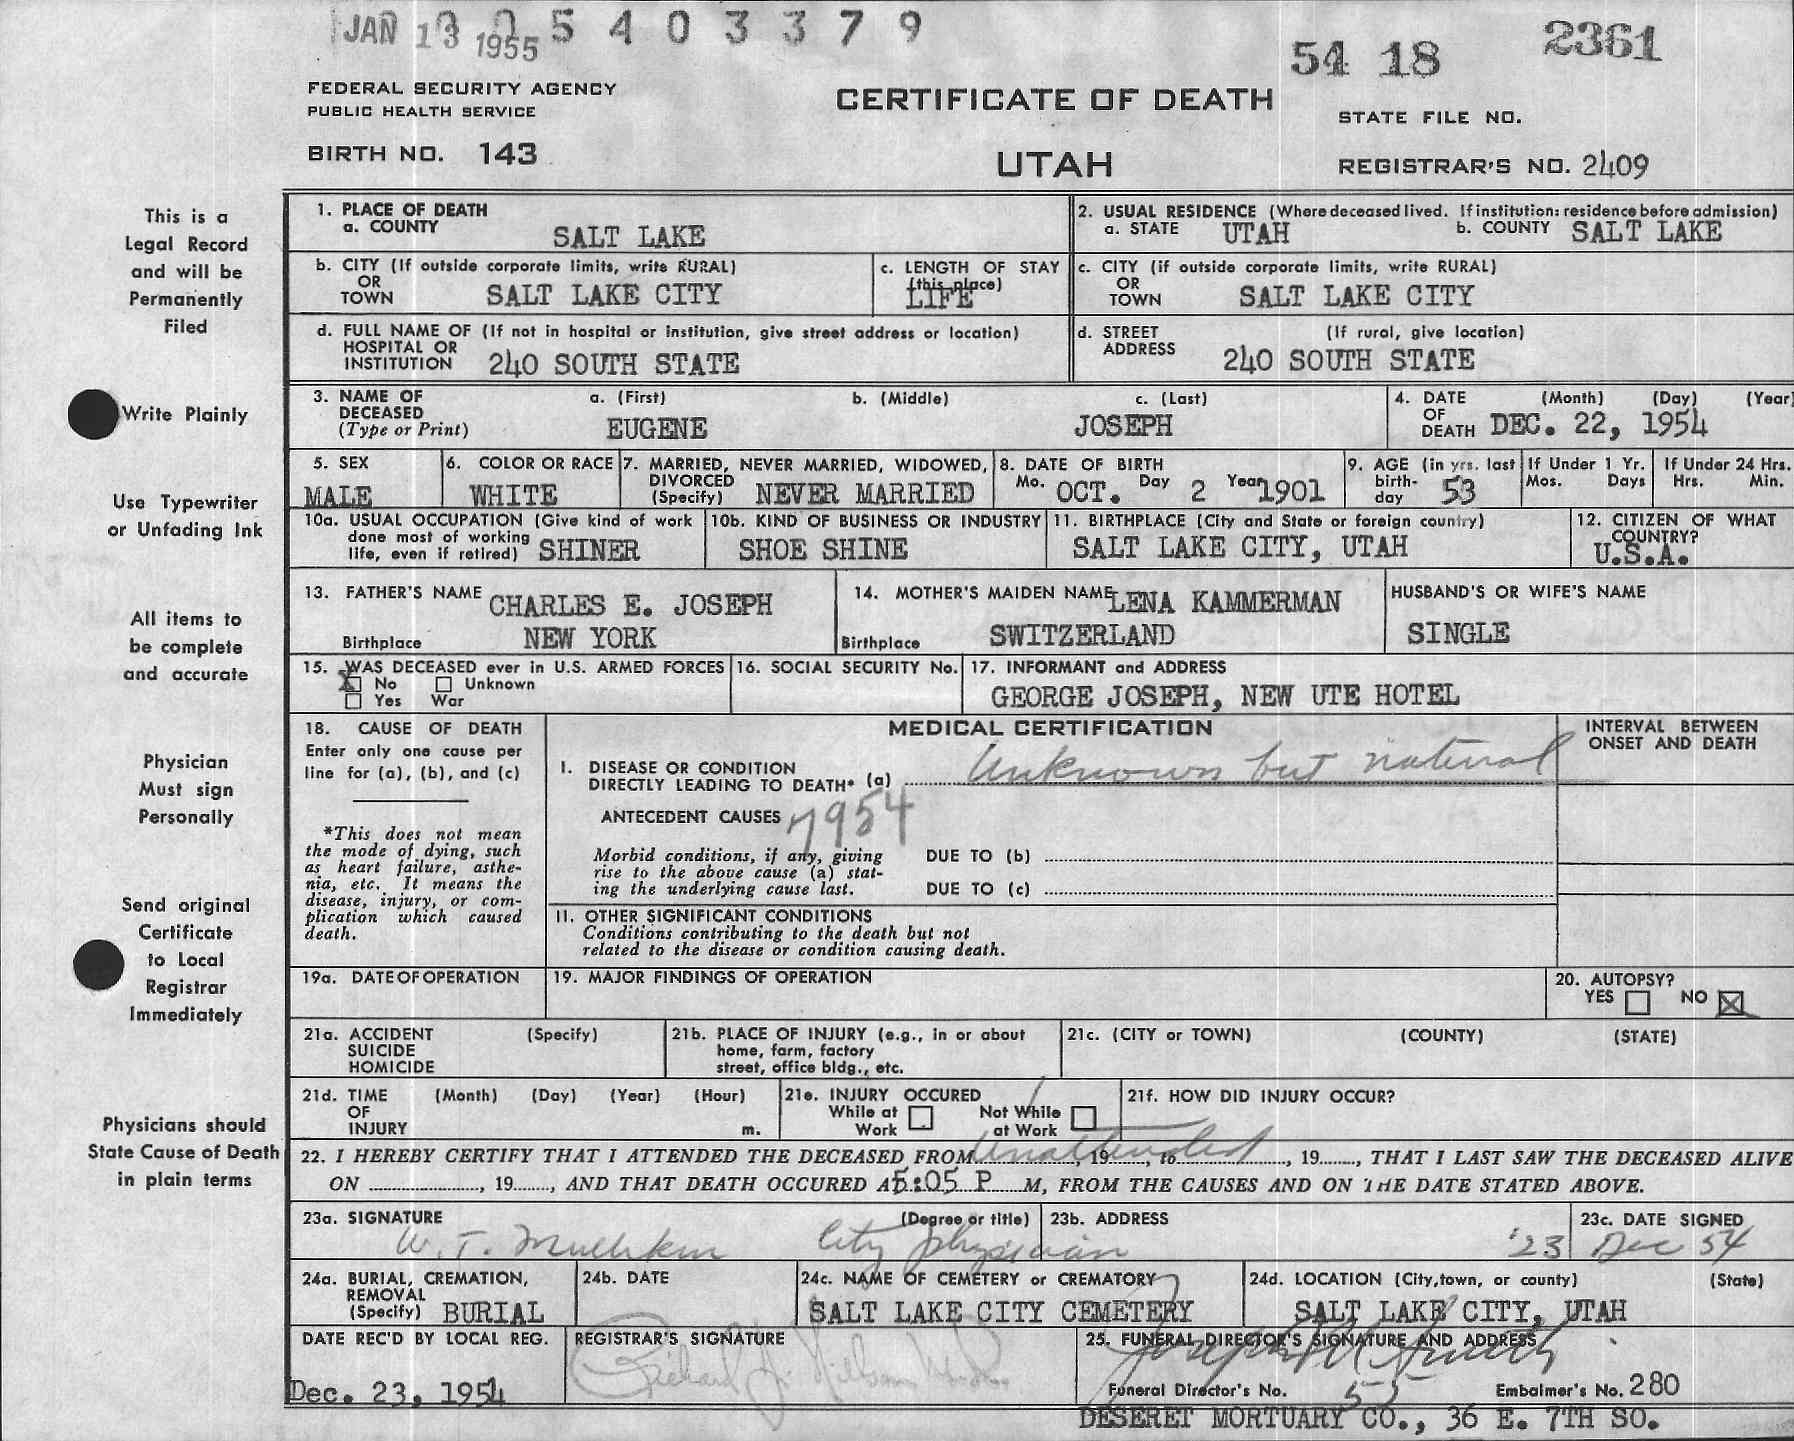 JAN 13 1955 5 4 0 3 3 7 9
54 18 2361
FEDERAL SECURITY AGENCY
PUBLIC HEALTH SERVICE
CERTIFICATE OF DEATH
STATE FILE NO.
BIRTH NO. 143
UTAH
REGISTRAR'S NO. 2409
This is a
Legal Record
and will be
Permanently
Filed
Write Plainly
Use Typewriter
or Unfading Ink
All items to
be complete
and accurate
Physician
Must sign
Personally
Send original
Certificate
to Local
Registrar
Immediately
Physicians should
State Cause of Death
in plain terms
1. PLACE OF DEATH
a. COUNTY SALT LAKE
2. USUAL RESIDENCE (Where deceased lived. If institution: residence before admission)
a. STATE UTAH b. COUNTY SALT LAKE
b. CITY (If outside corporate limits, write RURAL)
OR
TOWN SALT LAKE CITY
c. LENGTH OF STAY
(this place)
LIFE
c. CITY (if outside corporate limits, write RURAL)
OR
TOWN SALT LAKE CITY
d. FULL NAME OF (If not in hospital or institution, give street address or location)
HOSPITAL OR
INSTITUTION 240 SOUTH STATE
d. STREET (If rural, give location)
ADDRESS 240 SOUTH STATE
3. NAME OF a. (First) b. (Middle) c. (Last)
DECEASED
(Type or Print) EUGENE JOSEPH
4. DATE (Month) (Day) (Year)
OF
DEATH DEC. 22, 1954
5. SEX
MALE
6. COLOR OR RACE
WHITE
7. MARRIED, NEVER MARRIED, WIDOWED,
DIVORCED
(Specify) NEVER MARRIED
8. DATE OF BIRTH
Mo. OCT. Day 2 Year 1901
9. AGE (in yrs. last
birth-
day 53
If Under 1 Yr.
Mos. Days
If Under 24 Hrs.
Hrs. Min.
10a. USUAL OCCUPATION (Give kind of work
done most of working
life, even if retired) SHINER
10b. KIND OF BUSINESS OR INDUSTRY
SHOE SHINE
11. BIRTHPLACE (City and State or foreign country)
SALT LAKE CITY, UTAH
12. CITIZEN OF WHAT
COUNTRY?
U.S.A.
13. FATHER'S NAME CHARLES E. JOSEPH
Birthplace NEW YORK
14. MOTHER'S MAIDEN NAME LENA KAMMERMAN
Birthplace SWITZERLAND
HUSBAND'S OR WIFE'S NAME
SINGLE
15. WAS DECEASED ever in U.S. ARMED FORCES
X No Unknown
Yes War
16. SOCIAL SECURITY No.
17. INFORMANT and ADDRESS
GEORGE JOSEPH, NEW UTE HOTEL
18. CAUSE OF DEATH
Enter only one cause per
line for (a), (b), and (c)
*This does not mean
the mode of dying, such
as heart failure, asthe-
nia, etc. It means the
disease, injury, or com-
plication which caused
death.
MEDICAL CERTIFICATION
INTERVAL BETWEEN
ONSET AND DEATH
I. DISEASE OR CONDITION
DIRECTLY LEADING TO DEATH* (a) Unknown but natural
ANTECEDENT CAUSES 7954
Morbid conditions, if any, giving
rise to the above cause (a) stat-
ing the underlying cause last.
DUE TO (b)
DUE TO (c)
II. OTHER SIGNIFICANT CONDITIONS
Conditions contributing to the death but not
related to the disease or condition causing death.
19a. DATE OF OPERATION
19. MAJOR FINDINGS OF OPERATION
20. AUTOPSY?
YES NO X
21a. ACCIDENT (Specify)
SUICIDE
HOMICIDE
21b. PLACE OF INJURY (e.g., in or about
home, farm, factory
street, office bldg., etc.
21c. (CITY or TOWN) (COUNTY) (STATE)
21d. TIME (Month) (Day) (Year) (Hour)
OF
INJURY m.
21e. INJURY OCCURED
While at Not While
Work at Work
21f. HOW DID INJURY OCCUR?
22. I HEREBY CERTIFY THAT I ATTENDED THE DECEASED FROM Unattended, 19......, to ......, 19......, THAT I LAST SAW THE DECEASED ALIVE
ON ......, 19......, AND THAT DEATH OCCURED AT 5:05 P M, FROM THE CAUSES AND ON THE DATE STATED ABOVE.
23a. SIGNATURE (Degree or title)
W. T. Mullikin City physician
23b. ADDRESS
23c. DATE SIGNED
'23 Dec 54
24a. BURIAL, CREMATION,
REMOVAL
(Specify) BURIAL
24b. DATE
24c. NAME OF CEMETERY or CREMATORY
SALT LAKE CITY CEMETERY
24d. LOCATION (City, town, or county) (State)
SALT LAKE CITY, UTAH
DATE REC'D BY LOCAL REG.
Dec. 23, 1954
REGISTRAR'S SIGNATURE
Richard J. Nelson
25. FUNERAL DIRECTOR'S SIGNATURE AND ADDRESS
Joseph R Smith
Funeral Director's No. 55 Embalmer's No. 280
DESERET MORTUARY CO., 36 E. 7TH SO.